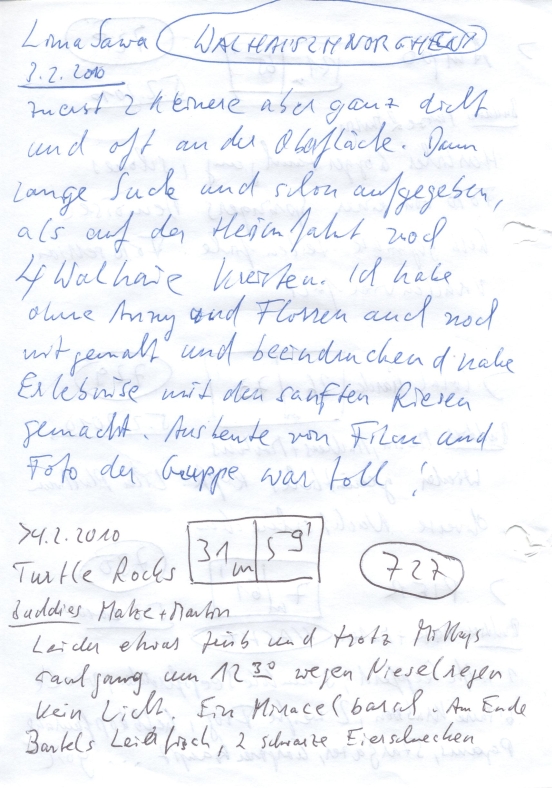 Lima Sawa WALHAISCHNORCHELN
3.2.2010
zuerst 2 kleinere aber ganz dicht
und oft an der Oberfläche. Dann
lange Suche und schon aufgegeben,
als auf der Heimfahrt noch
4 Walhaie kreisten. Ich habe
ohne Anzug und Flossen auch noch
mitgemacht und beeindruckend nahe
Erlebnise mit den sanften Riesen
gemacht. Ausbeute von Film und
Foto der Gruppe war toll!
>4.2.2010
Turtle Rocks 31m 59' 727
Buddies Matze + Martin
Leider etwas trüb und trotz Mittags
tauchgang um 12 30 wegen Nieselregen
kein Licht. Ein Miracel barsch. Am Ende
Bartels Leierfisch, 2 schwarze Eierschnecken